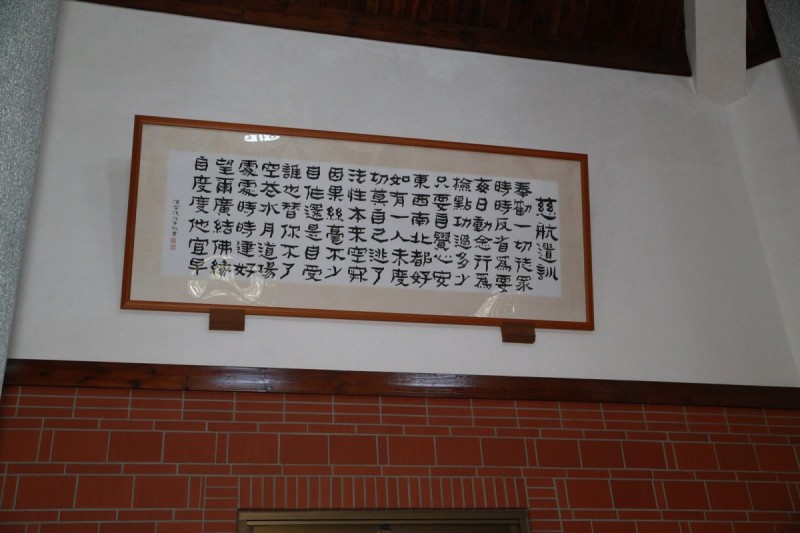 慈航遺訓
奉勸一切徒眾
時時反省為要
每日動念行為
檢點功過多少
只要自覺心安
東西南北都好
如有一人未度
切莫自己逃了
法性本来空寂
因果絲毫不少
自作還是自受
誰也替你不了
空花水月道場
處處時時建好
望爾廣結佛緣
自度度他宜早